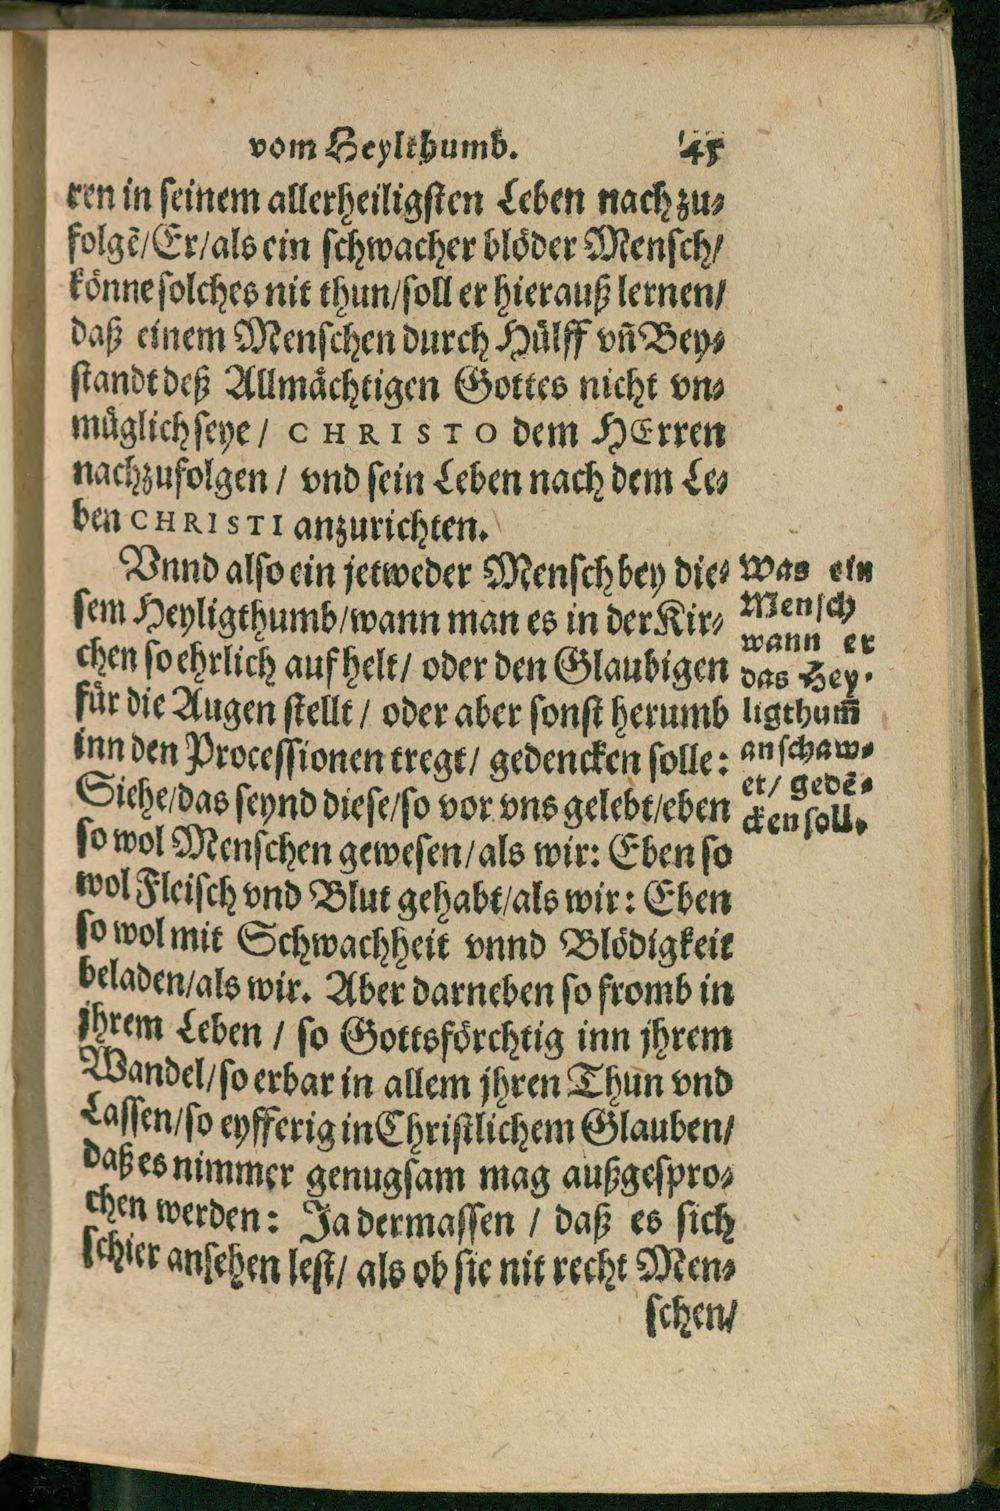 vom Heylthumb. 45
ren in seinem allerheiligsten Leben nach zu⸗
folgẽ/Er/als ein schwacher blöder Mensch/
könne solches nit thun/soll er hierauß lernen/
daß einem Menschen durch Hülff vñ Bey⸗
standt deß Allmächtigen Gottes nicht vn⸗
müglich seye / CHRISTO dem HErren
nachzufolgen / vnd sein Leben nach dem Le⸗
ben CHRISTI anzurichten.
Vnnd also ein jetweder Mensch bey die⸗
sem Heyligthumb/wann man es in der Kir⸗
chen so ehrlich auf helt/ oder den Glaubigen
für die Augen stellt / oder aber sonst herumb
inn den Processionen tregt/ gedencken solle:
Siehe/das seynd diese/so vor vns gelebt/eben
so wol Menschen gewesen/als wir: Eben so
wol Fleisch vnd Blut gehabt/als wir: Eben
so wol mit Schwachheit vnnd Blödigkeit
beladen/als wir. Aber darneben so fromb in
jhrem Leben / so Gottsförchtig inn jhrem
Wandel/so erbar in allem jhren Thun vnd
Lassen/so eyfferig in Christlichem Glauben/
daß es nimmer genugsam mag außgespro⸗
chen werden: Ja dermassen / daß es sich
schier ansehen lest/ als ob sie nit recht Men⸗
schen/
Was ein
Mensch
wann er
das Hey⸗
ligthum̃
anschaw⸗
et/ gedẽ⸗
cken soll.